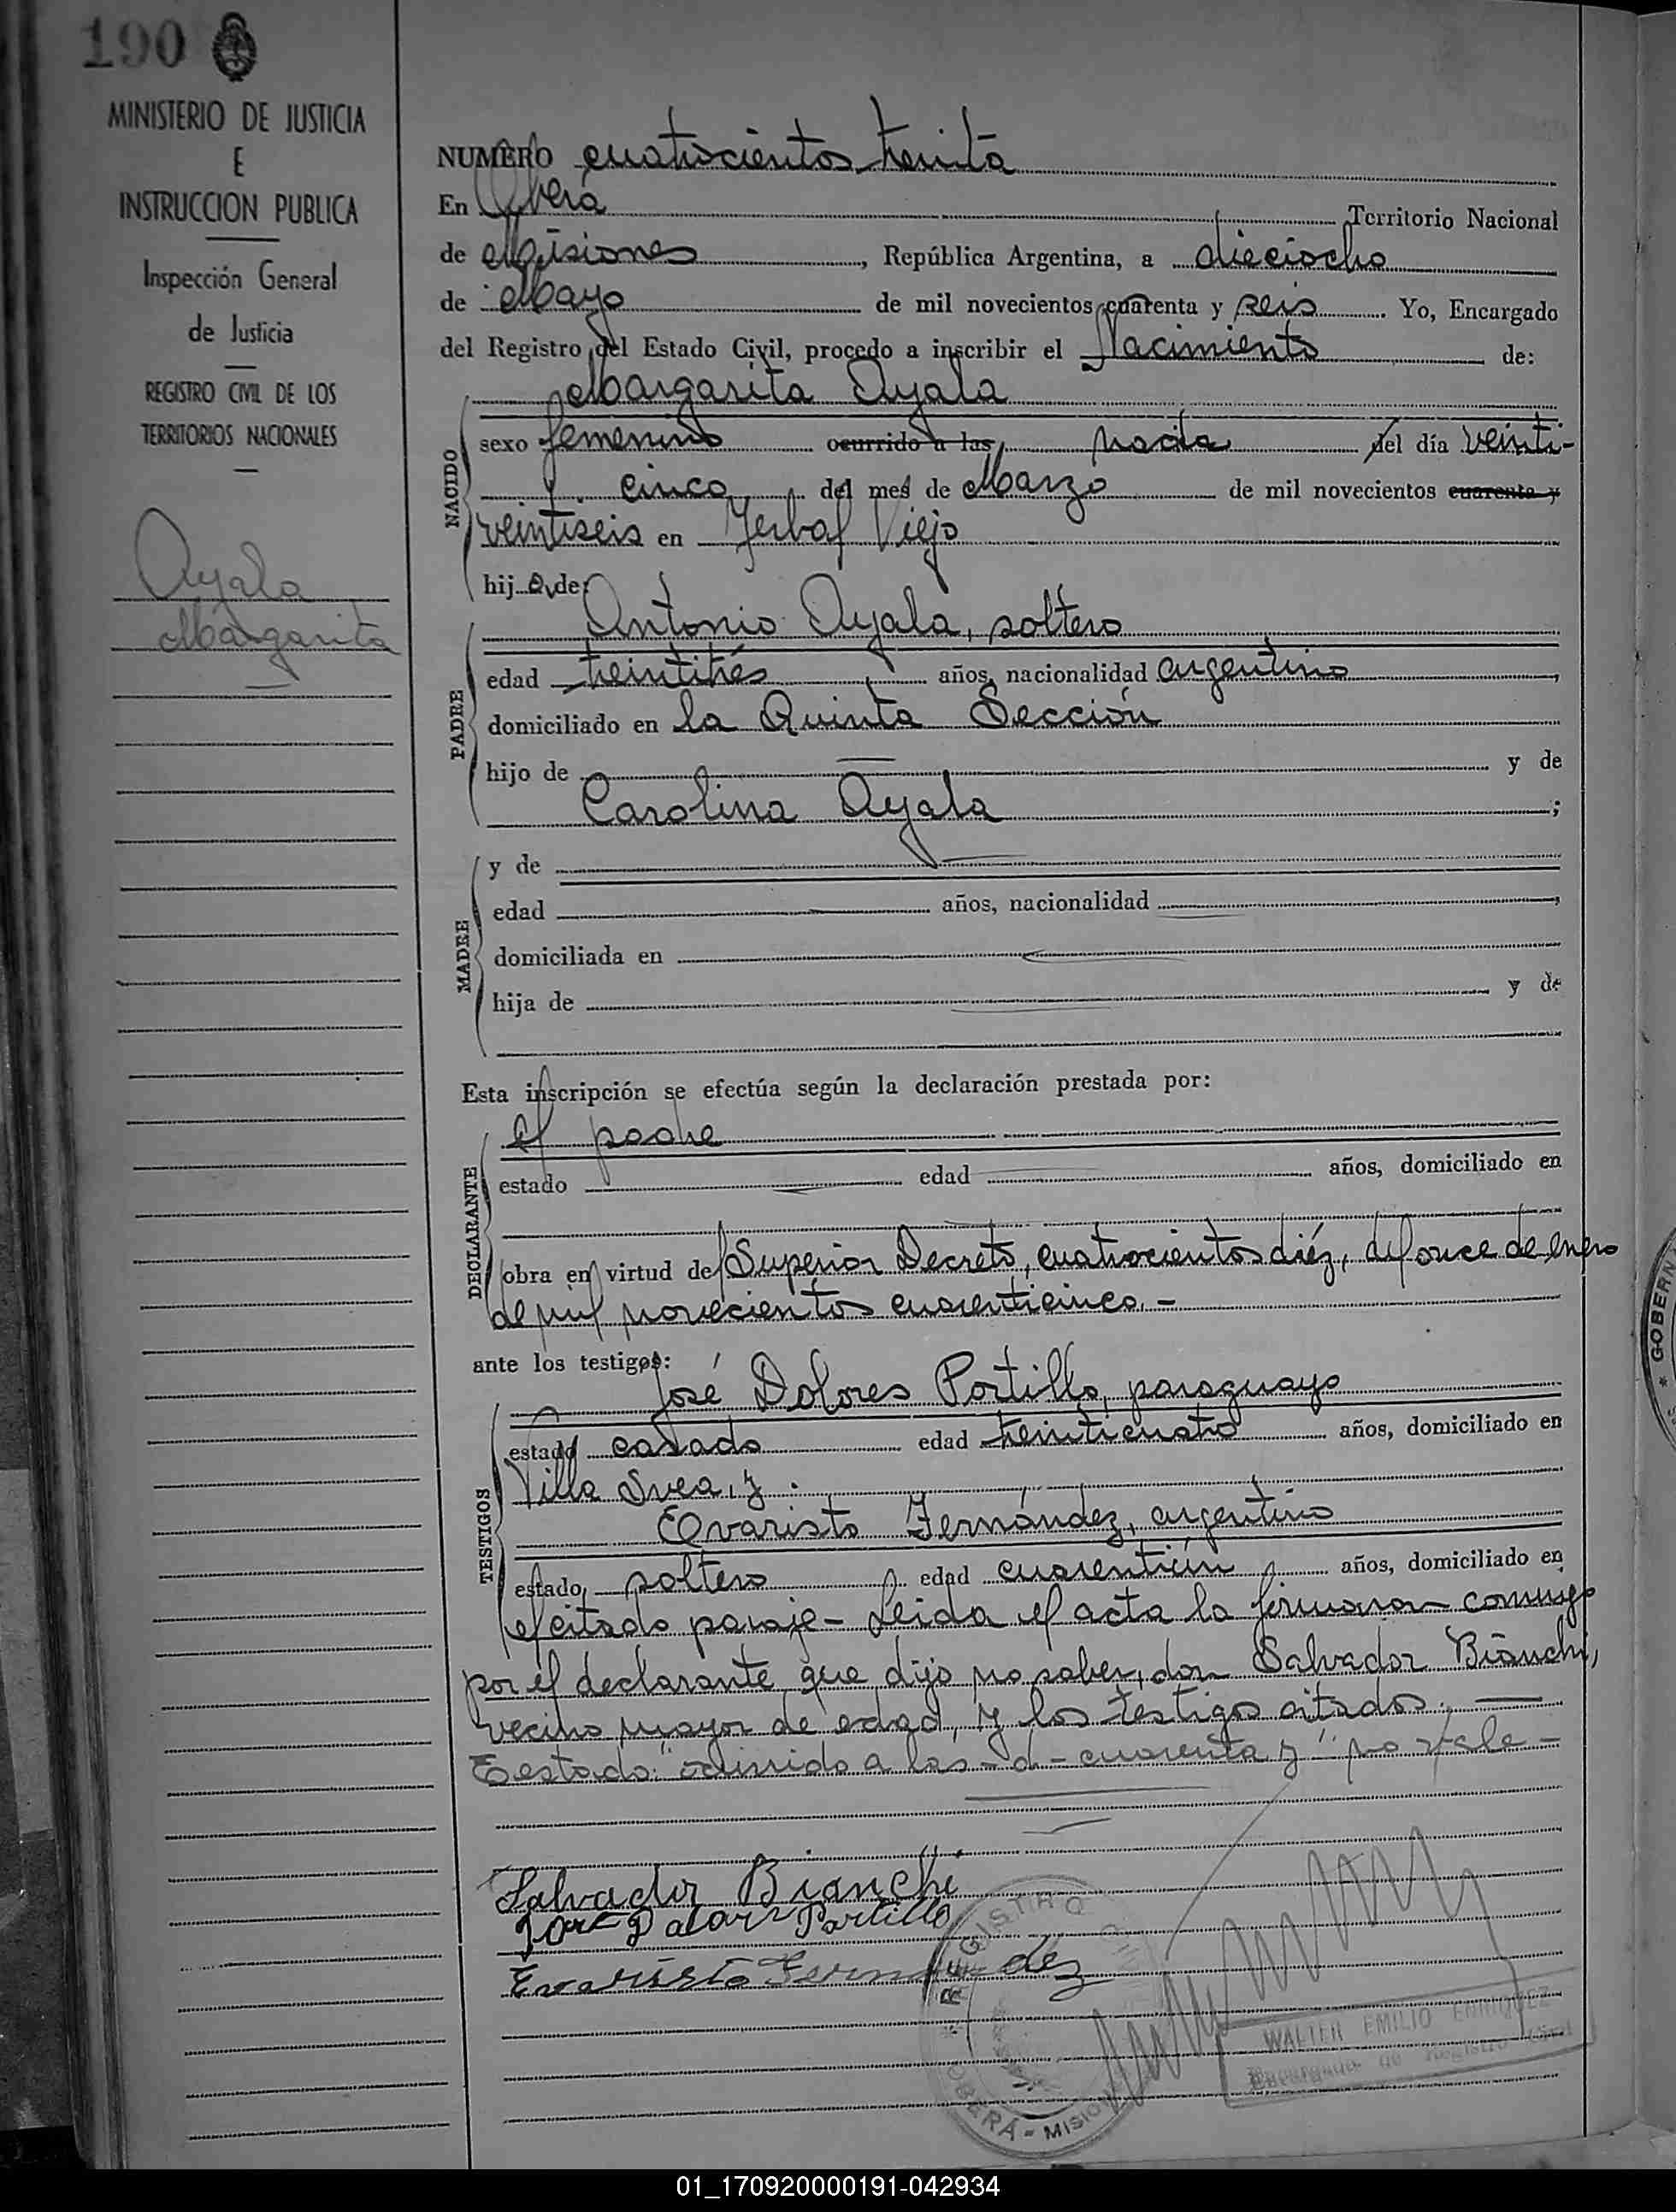 190
MINISTERIO DE JUSTICIA
E
INSTRUCCION PUBLICA
Inspección General
de Justicia
REGISTRO CIVIL DE LOS
TERRITORIOS NACIONALES
Ayala
Margarita
NUMERO cuatrocientos treinta
En Oberá Territorio Nacional
de Misiones, República Argentina, a dieciocho
de Mayo de mil novecientos cuarenta y seis. Yo, Encargado
del Registro del Estado Civil, procedo a inscribir el Nacimiento de:
Margarita Ayala
NACIDO
sexo femenino ocurrido a las nacida del día veinti-
cinco del mes de Marzo de mil novecientos cuarenta y
veintiseis en Yerbal Viejo
hija de:
PADRE
Antonio Ayala, soltero
edad treintitrés años, nacionalidad argentino,
domiciliado en la Quinta Sección
hijo de y de
Carolina Ayala;
MADRE
y de
edad años, nacionalidad,
domiciliada en
hija de y de
Esta inscripción se efectúa según la declaración prestada por:
DECLARANTE
el padre
estado edad años, domiciliado en
obra en virtud del Superior Decreto, cuatrocientos diéz, del once de enero
de mil novecientos cuarenticinco.-
ante los testigos:
TESTIGOS
José Dolores Portillo, paraguayo
estado casado edad treinticuatro años, domiciliado en
Villa Svea, y
Evaristo Fernández, argentino
estado soltero edad cuarentiún años, domiciliado en
el citado paraje- Leida el acta la firmaron conmigo
por el declarante que dijo no saber, don Salvador Bianchi,
vecino mayor de edad, y los testigos citados.
Testado: "ocurrido a las -d- cuarenta y" no vale-
Salvador Bianchi
José Dolores Portillo
Evaristo Fernandez
REGISTRO CIVIL
OBERÁ - MISIONES
WALTER EMILIO ENRIQUEZ
Encargado de Registro Civil
GOBERN
01_170920000191-042934